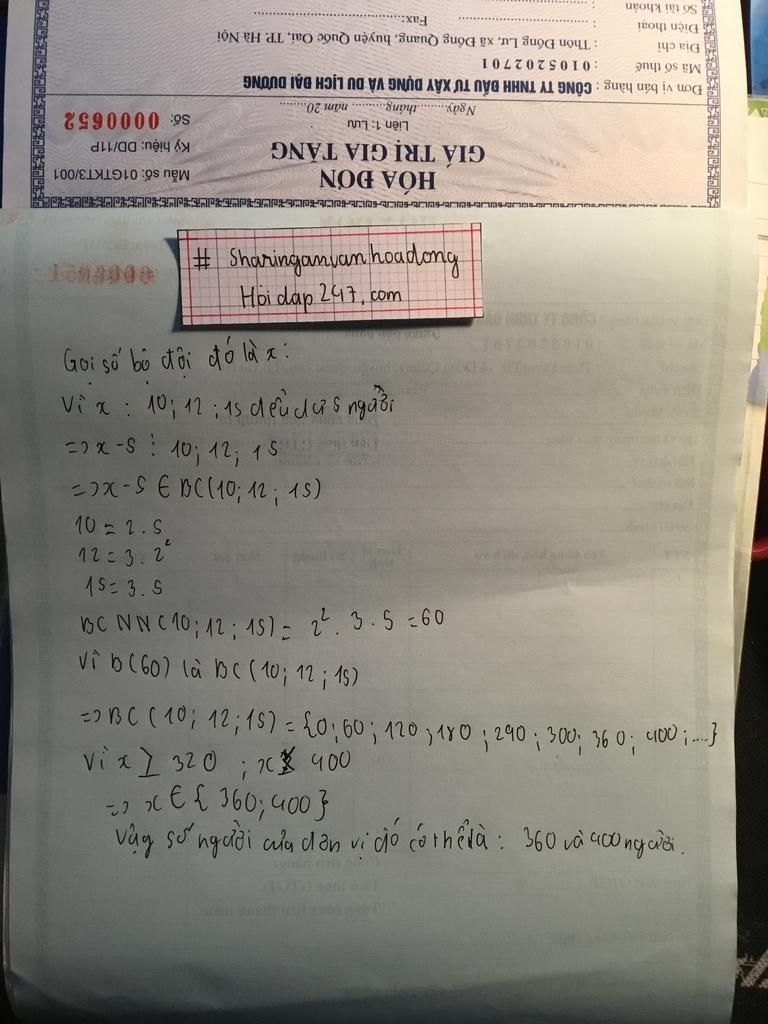 Số tài khoản : ..........
Điện thoại : .......... Fax:..........
Địa chỉ : Thôn Đồng Lư, xã Đồng Quang, huyện Quốc Oai, TP. Hà Nội
Mã số thuế : 0105202701
Đơn vị bán hàng : CÔNG TY TNHH ĐẦU TƯ XÂY DỰNG VÀ DU LỊCH ĐẠI DƯƠNG
Ngày........tháng........năm 20........
Liên 1: Lưu
Số: 0000652
GIÁ TRỊ GIA TĂNG
Ký hiệu: DD/11P
HÓA ĐƠN
Mẫu số: 01GTKT3/001
# Sharinganvanhoadong
Hoidap247.com
Gọi số bộ đội đó là x:
Vì x : 10; 12 ; 15 đều dư 5 người
=> x-5 ⋮ 10; 12; 15
=> x-5 ∈ BC(10; 12; 15)
10 = 2.5
12 = 3.2²
15 = 3.5
BCNN(10; 12; 15) = 2².3.5 = 60
Vì B(60) là BC(10; 12; 15)
=> BC(10; 12; 15) = {0; 60; 120; 180; 290; 300; 360; 400; ....}
Vì x ≥ 320 ; x 400
=> x ∈ { 360; 400 }
Vậy số người của đơn vị đó có thể là : 360 và 400 người.